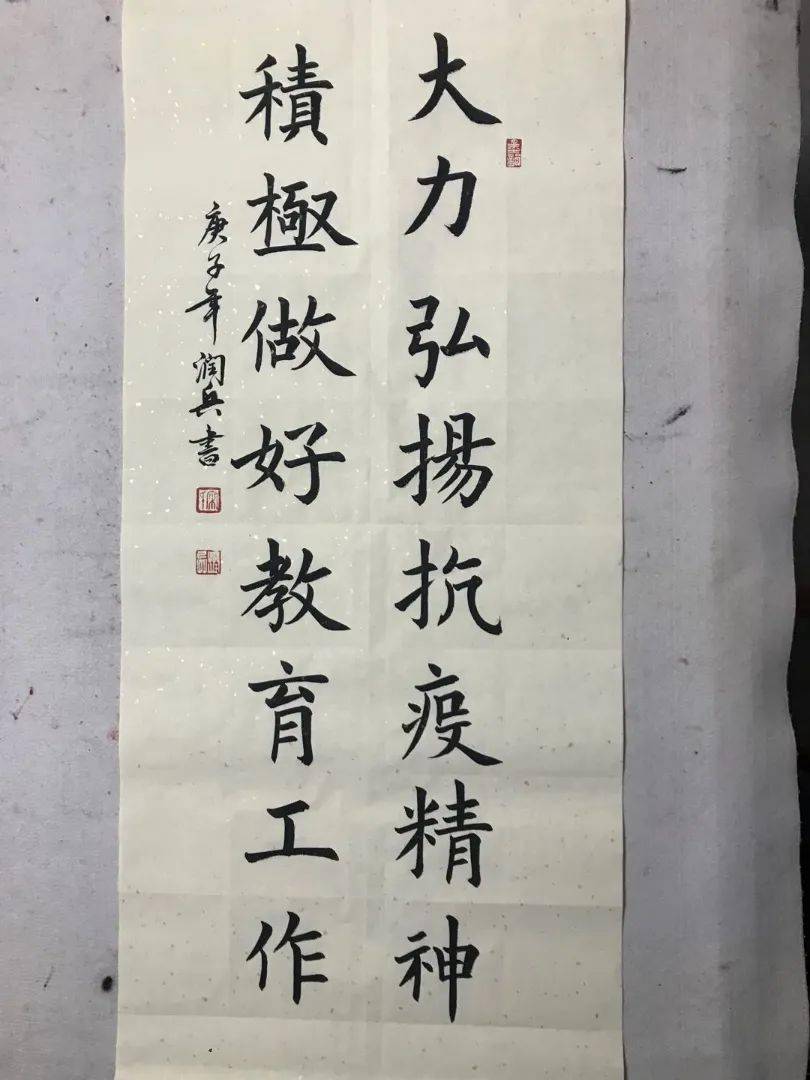 大力弘揚抗疫精神
積極做好教育工作
庚子年潤兵書